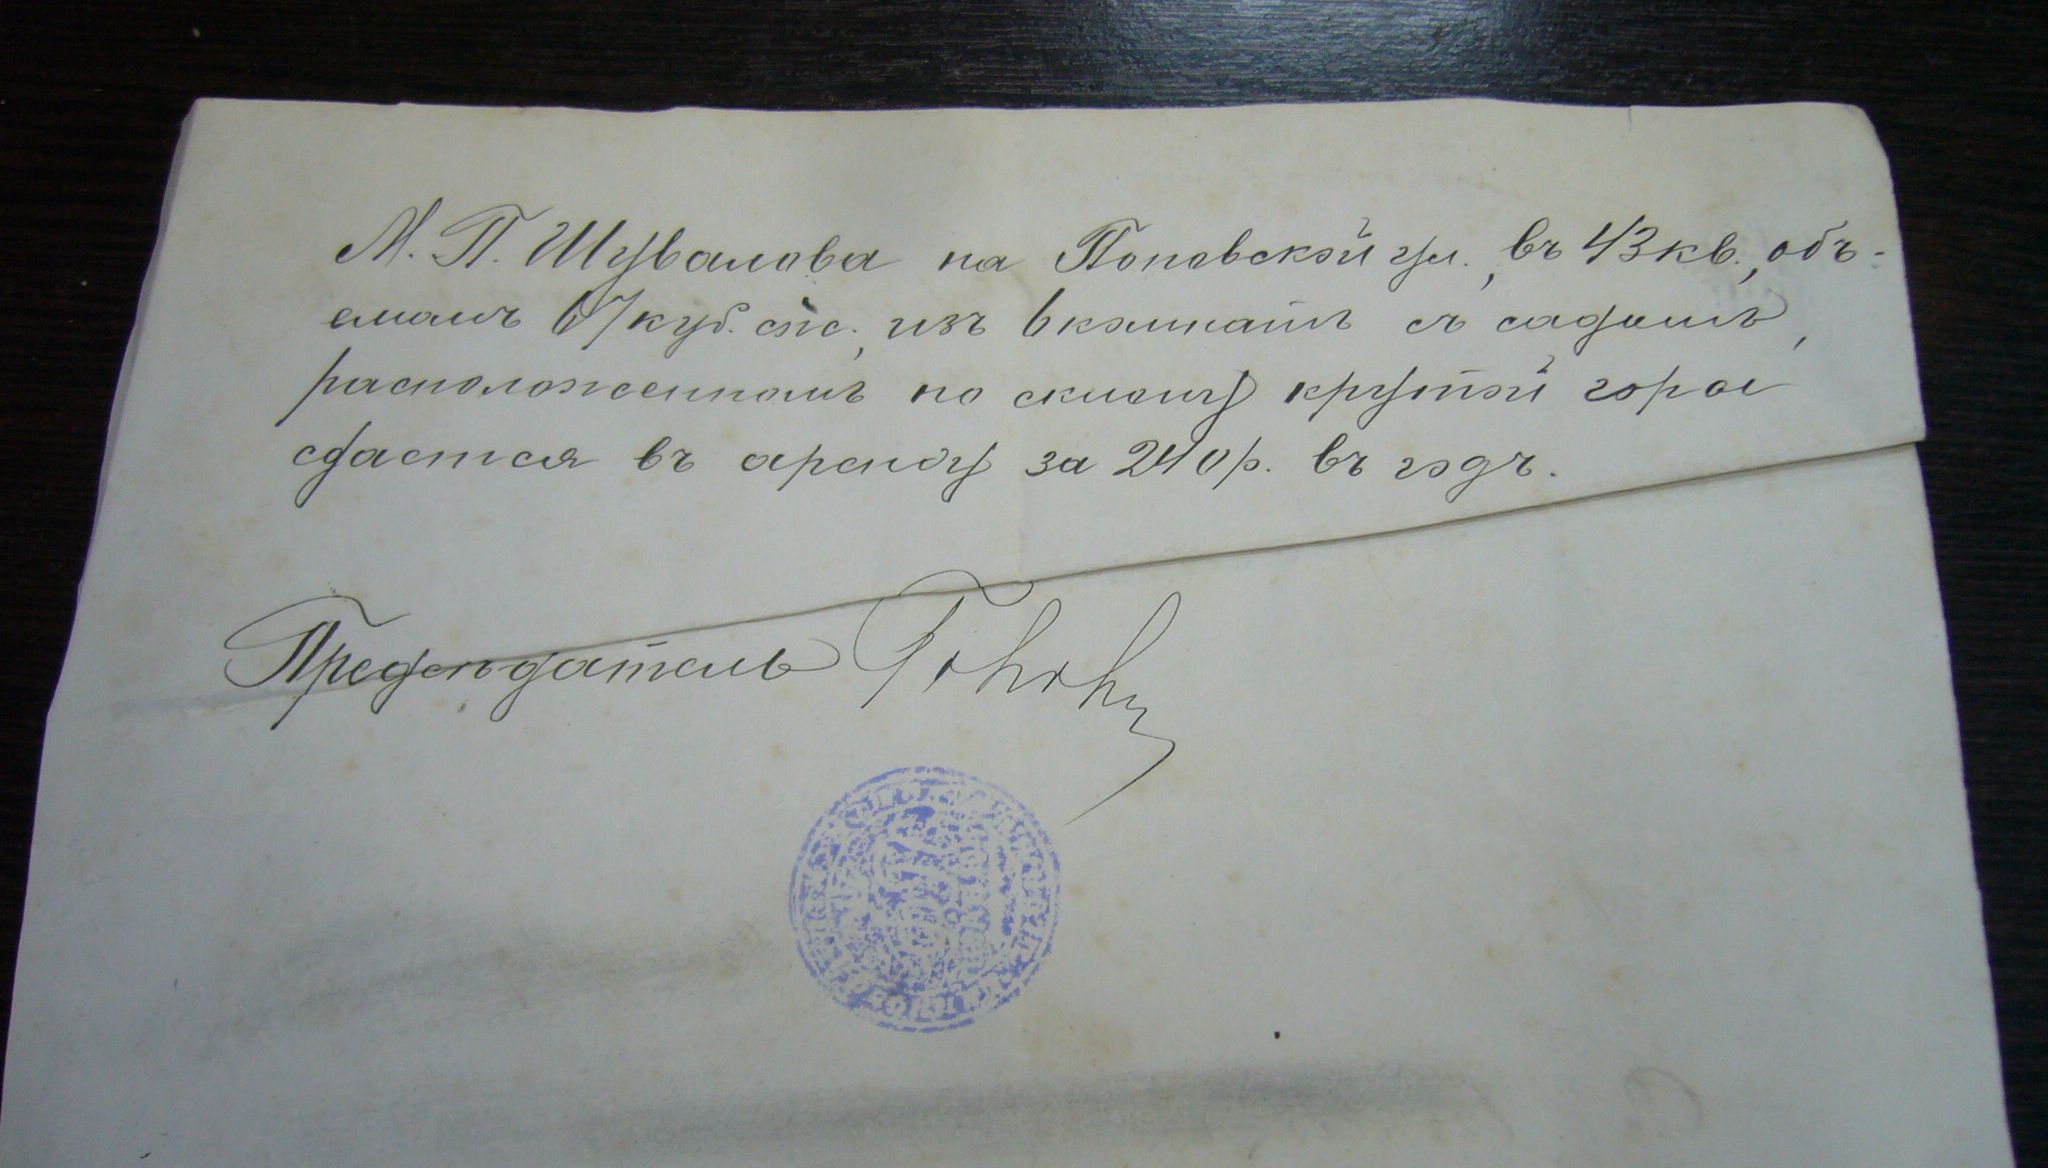 М. П. Шувалова на Поповской ул., въ 43 кв., объ-
емомъ 67 куб. саж., изъ 6 комнатъ съ садомъ,
расположеннымъ по склону крутой горы
сдается въ аренду за 240 р. въ годъ.
Предсѣдатель